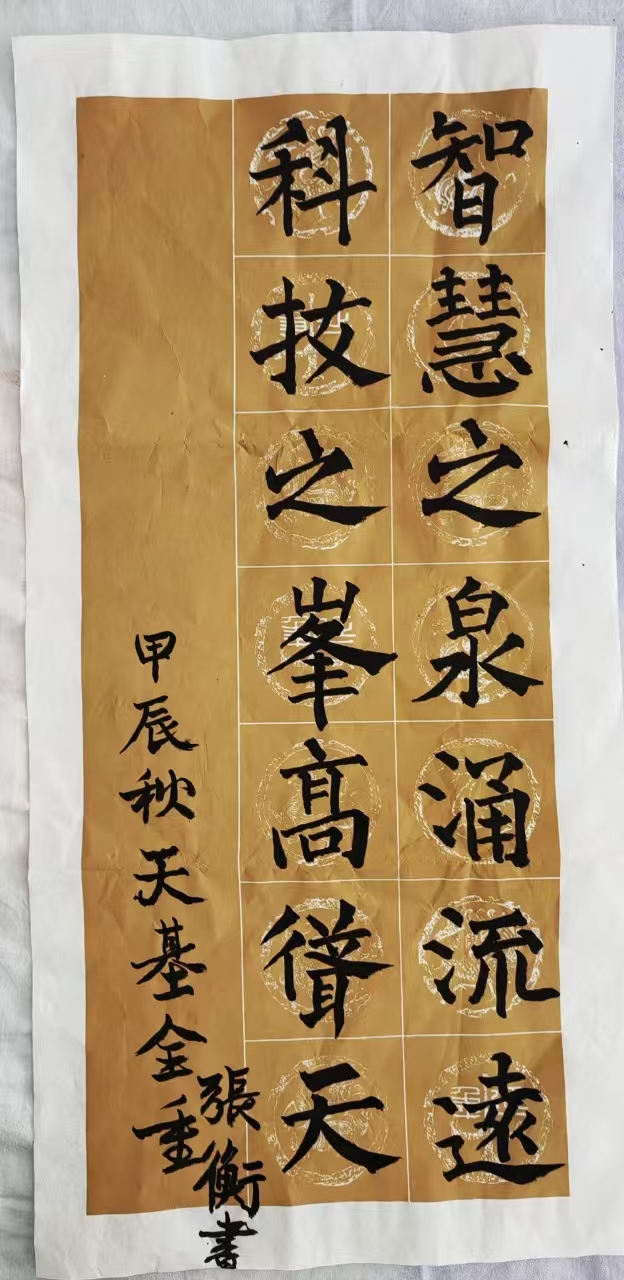 智慧之泉涌流遠
科技之峯髙聳天
甲辰秋天基金重
張衡書